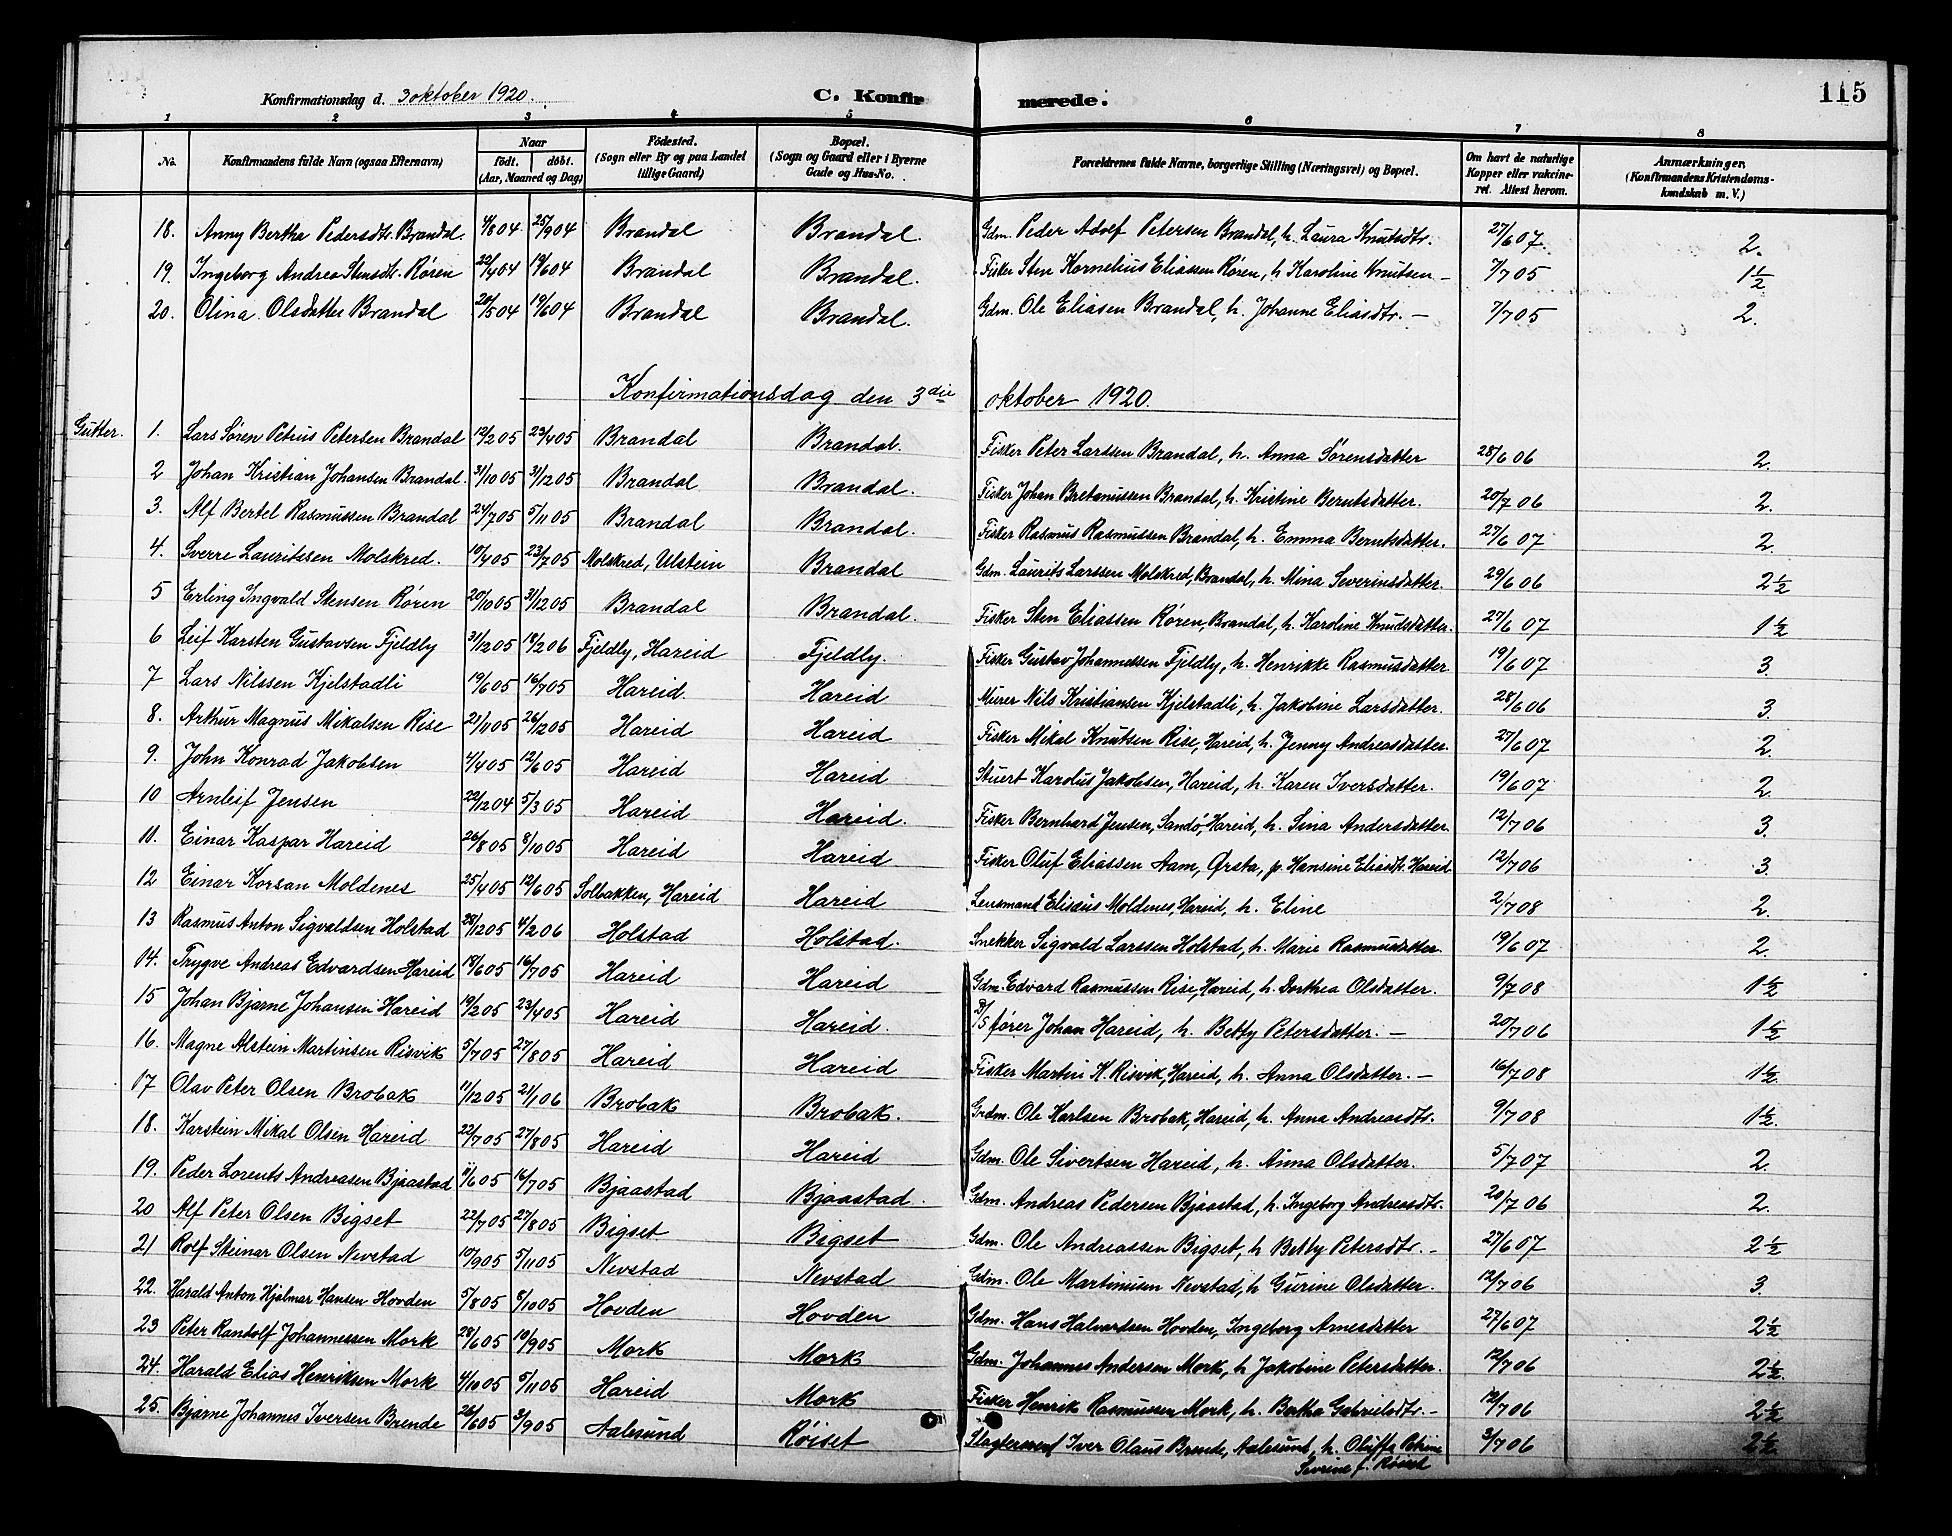 Konfirmationsdag d. 3 oktober 1920. C. Konfirmerede. 115
1 2 3 4 5 6 7 8
No. Konfirmandens fulde Navn (ogsaa Efternavn) Naar født. døbt. (Aar, Maaned og Dag) Fødested. (Sogn eller By og paa Landet tillige Gaard) Bopæl. (Sogn og Gaard eller i Byerne Gade og Hus-No. Forældrenes fulde Navne, borgerlige Stilling (Næringsvei) og Bopæl. Om havt de naturlige Kopper eller vakcineret. Attest herom. Anmærkninger. (Konfirmandens Kristendomskundskab m. V.)
18. Anny Bertha Pedersdtr. Brandal. 4/8 04 25/9 04 Brandal Brandal. Gdm. Peder Adolf Petersen Brandal, h. Laura Knutsdtr. 27/6 07. 2.
19. Ingeborg Andrea Stensdtr. Røren 22/4 04 19/6 04 Brandal Brandal. Fisker Sten Kornelius Eliassen Røren, h. Karoline Knutsen – 7/7 05 1½
20. Olina Olsdatter Brandal 20/5 04 19/6 04 Brandal Brandal. Gdm. Ole Eliasen Brandal, h. Johanne Eliasdtr. – 7/7 05 2.
Konfirmationsdag den 3die oktober 1920.
Gutter. 1. Lars Søren Petrus Petersen Brandal 12/2 05 23/4 05 Brandal Brandal. Fisker Peter Larssen Brandal, h. Anna Sørensdatter 28/6 06 2.
2 Johan Kristian Johansen Brandal. 31/10 05 31/12 05 Brandal Brandal. Fisker Johan Bretanussen Brandal, h. Kristine Berntsdatter. 20/7 06 2.
3. Alf Bertel Rasmussen Brandal 24/7 05 5/11 05 Brandal Brandal. Fisker Rasmus Rasmussen Brandal, h. Emma Berntsdatter. 27/6 07 2.
4. Sverre Lauritssen Molskred. 10/4 05 23/7 05 Molskred, Ulstein Brandal Gdm. Laurits Larssen Molskred, Brandal, h. Mina Severinsdatter. 29/6 06 2½
5 Erling Ingvald Stensen Røren 20/10 05 31/12 05 Brandal Brandal. Fisker Sten Eliassen Røren, Brandal, h. Karoline Knudsdatter. 27/6 07 1½
6 Leif Karsten Gustavsen Fjeldly 31/12 05 18/2 06 Fjeldly, Hareid Fjeldly. Fisker Gustav Johannessen Fjeldly, h. Henrikke Rasmusdatter 19/6 07 3.
7 Lars Nilssen Kjelstadli 19/6 05 16/7 05 Hareid. Hareid Murer Nils Kristiansen Kjelstadli, h. Jakobine Larsdatter. 28/6 06 3.
8. Arthur Magnus Mikalsen Rise 21/11 05 26/12 05 Hareid Hareid Fisker Mikal Knutsen Rise, Hareid, h. Jenny Andreasdatter. 27/6 07 2.
9. John Konrad Jakobsen 4/4 05 12/6 05 Hareid Hareid Stuert Karolus Jakobsen, Hareid, h. Karen Iversdatter. 19/6 07 2.
10 Arnleif Jensen 22/12 04 5/3 05 Hareid Hareid. Fisker Bernhard Jensen, Sandø, Hareid, h. Sina Andersdatter. 12/7 06 3.
11. Einar Kaspar Hareid 26/8 05 8/10 05 Hareid Hareid Fisker Oluf Eliassen Aam, Ørsta, p. Hansine Eliasdt. Hareid 12/7 06 3.
12 Einar Korsan Moldenes 25/4 05 12/6 05 Solbakken, Hareid Hareid Lensmand Elisæus Moldenes, Hareid, h. Eline 2/7 08 2.
13 Rasmus Anton Sigvaldsen Holstad 28/12 05 4/2 06 Holstad Holstad. Snekker Sigvald Larssen Holstad, h. Marie Rasmusdatter. 19/6 07 2.
14. Trygve Andreas Edvardsen Hareid 18/6 05 16/7 05 Hareid Hareid Gdm. Edvard Rasmussen Rise, Hareid, h. Dorthea Olsdatter. 9/7 08 1½
15 Johan Bjarne Johansen Hareid 19/2 05 23/4 05 Hareid Hareid. D/S fører Johan Hareid, h. Betty Petersdatter. – 20/7 06 1½
16. Magne Alstein Martinsen Risvik 5/7 05 27/8 05 Hareid Hareid Fisker Martin K. Risvik, Hareid, h. Anna Olsdatter. – 16/7 08 1½.
17 Olav Peter Olsen Brobak 11/12 05 21/1 06 Brobak Brobak. Grdm. Ole Karlsen Brobak, Hareid, h. Anna Andreasdtr. 9/7 08 1½.
18. Karstein Mikal Olsen Hareid 22/7 05 27/8 05 Hareid Hareid Gdm. Ole Sivertsen Hareid, h. Anna Olsdatter. 5/7 07 2.
19. Peder Lorents Andreasen Bjaastad 11/6 05 16/7 05 Bjaastad Bjaastad. Gdm. Andreas Pedersen Bjaastad, h. Ingeborg Andreasdtr. 20/7 06 2.
20 Alf Peter Olsen Bigset 22/7 05 27/8 05 Bigset Bigset Gdm. Ole Andreassen Bigset, h. Betty Petersdtr. – 27/6 07 2½
21 Rolf Steinar Olsen Nevstad 10/9 05 5/11 05 Nevstad Nevstad Gdm. Ole Martinusen Nevstad, h. Gurine Olsdatter. 12/7 06 3.
22. Harald Anton Hjalmar Hansen Hovden 5/8 05 8/10 05 Hovden Hovden Gdm. Hans Halvardsen Hovden, Ingeborg Arnesdatter 27/6 07 2½
23 Peter Randolf Johannessen Mork 28/6 05 10/9 05 Mork Mork Gdm. Johannes Andersen Mork, h. Jakobine Petersdatter. 12/7 06 2½.
24. Harald Elias Henriksen Mork 4/10 05 5/11 05 Hareid Mork Fisker Henrik Rasmussen Mork, h. Bertha Gabrielsdtr. – 12/7 06 2½
25. Bjarne Johannes Iversen Brende 26/6 05 3/9 05 Aalesund Røiset Slagtersvend Iver Olaus Brende, Aalesund, h. Olufta Petrine 3/7 06 2½
Severine f. Røiset